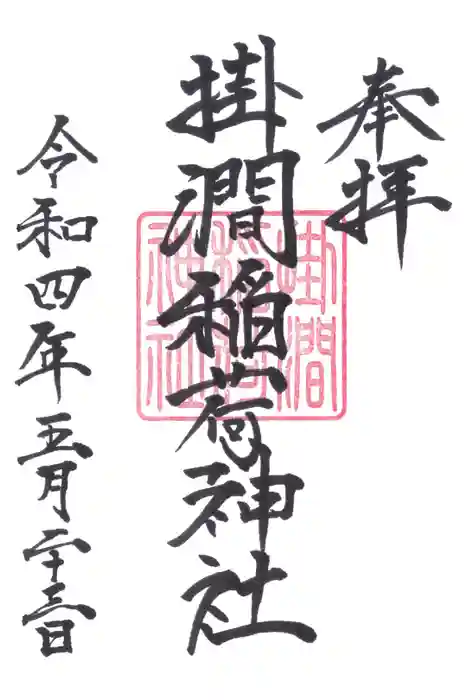 奉拝
掛澗稲荷神社
掛澗
稲荷
神社
令和四年五月二十三日